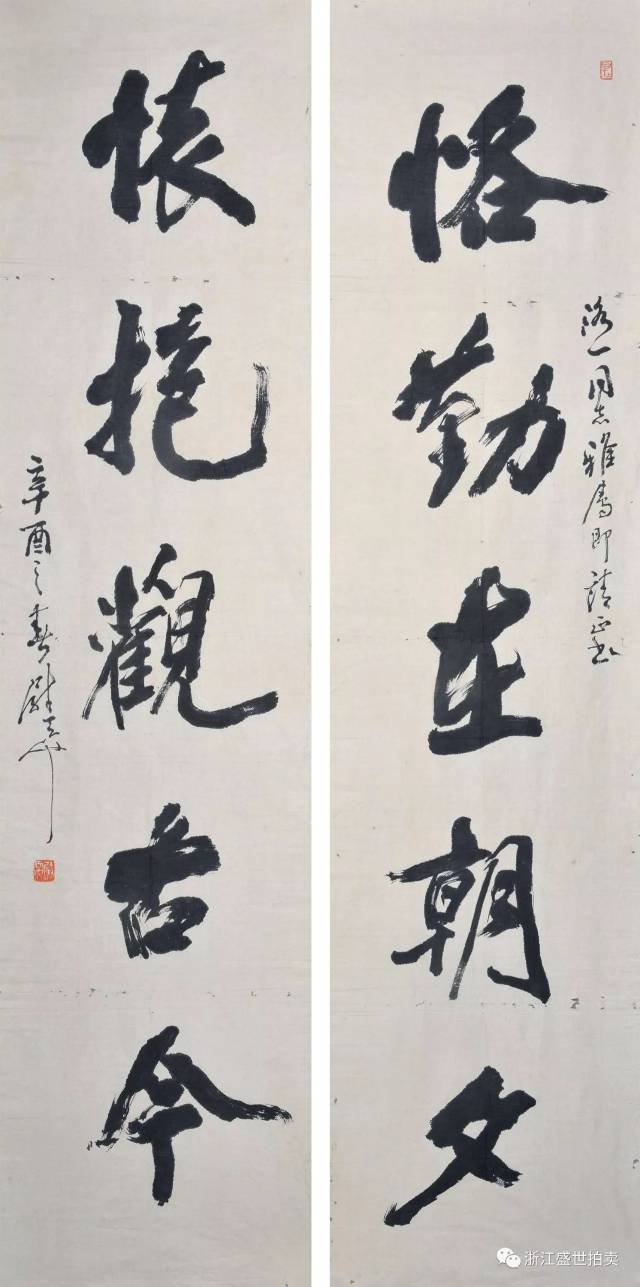 恪勤在朝夕
洛一同志雅屬即請正
懷抱觀古今
辛酉之春尉天池
浙江盛世拍卖